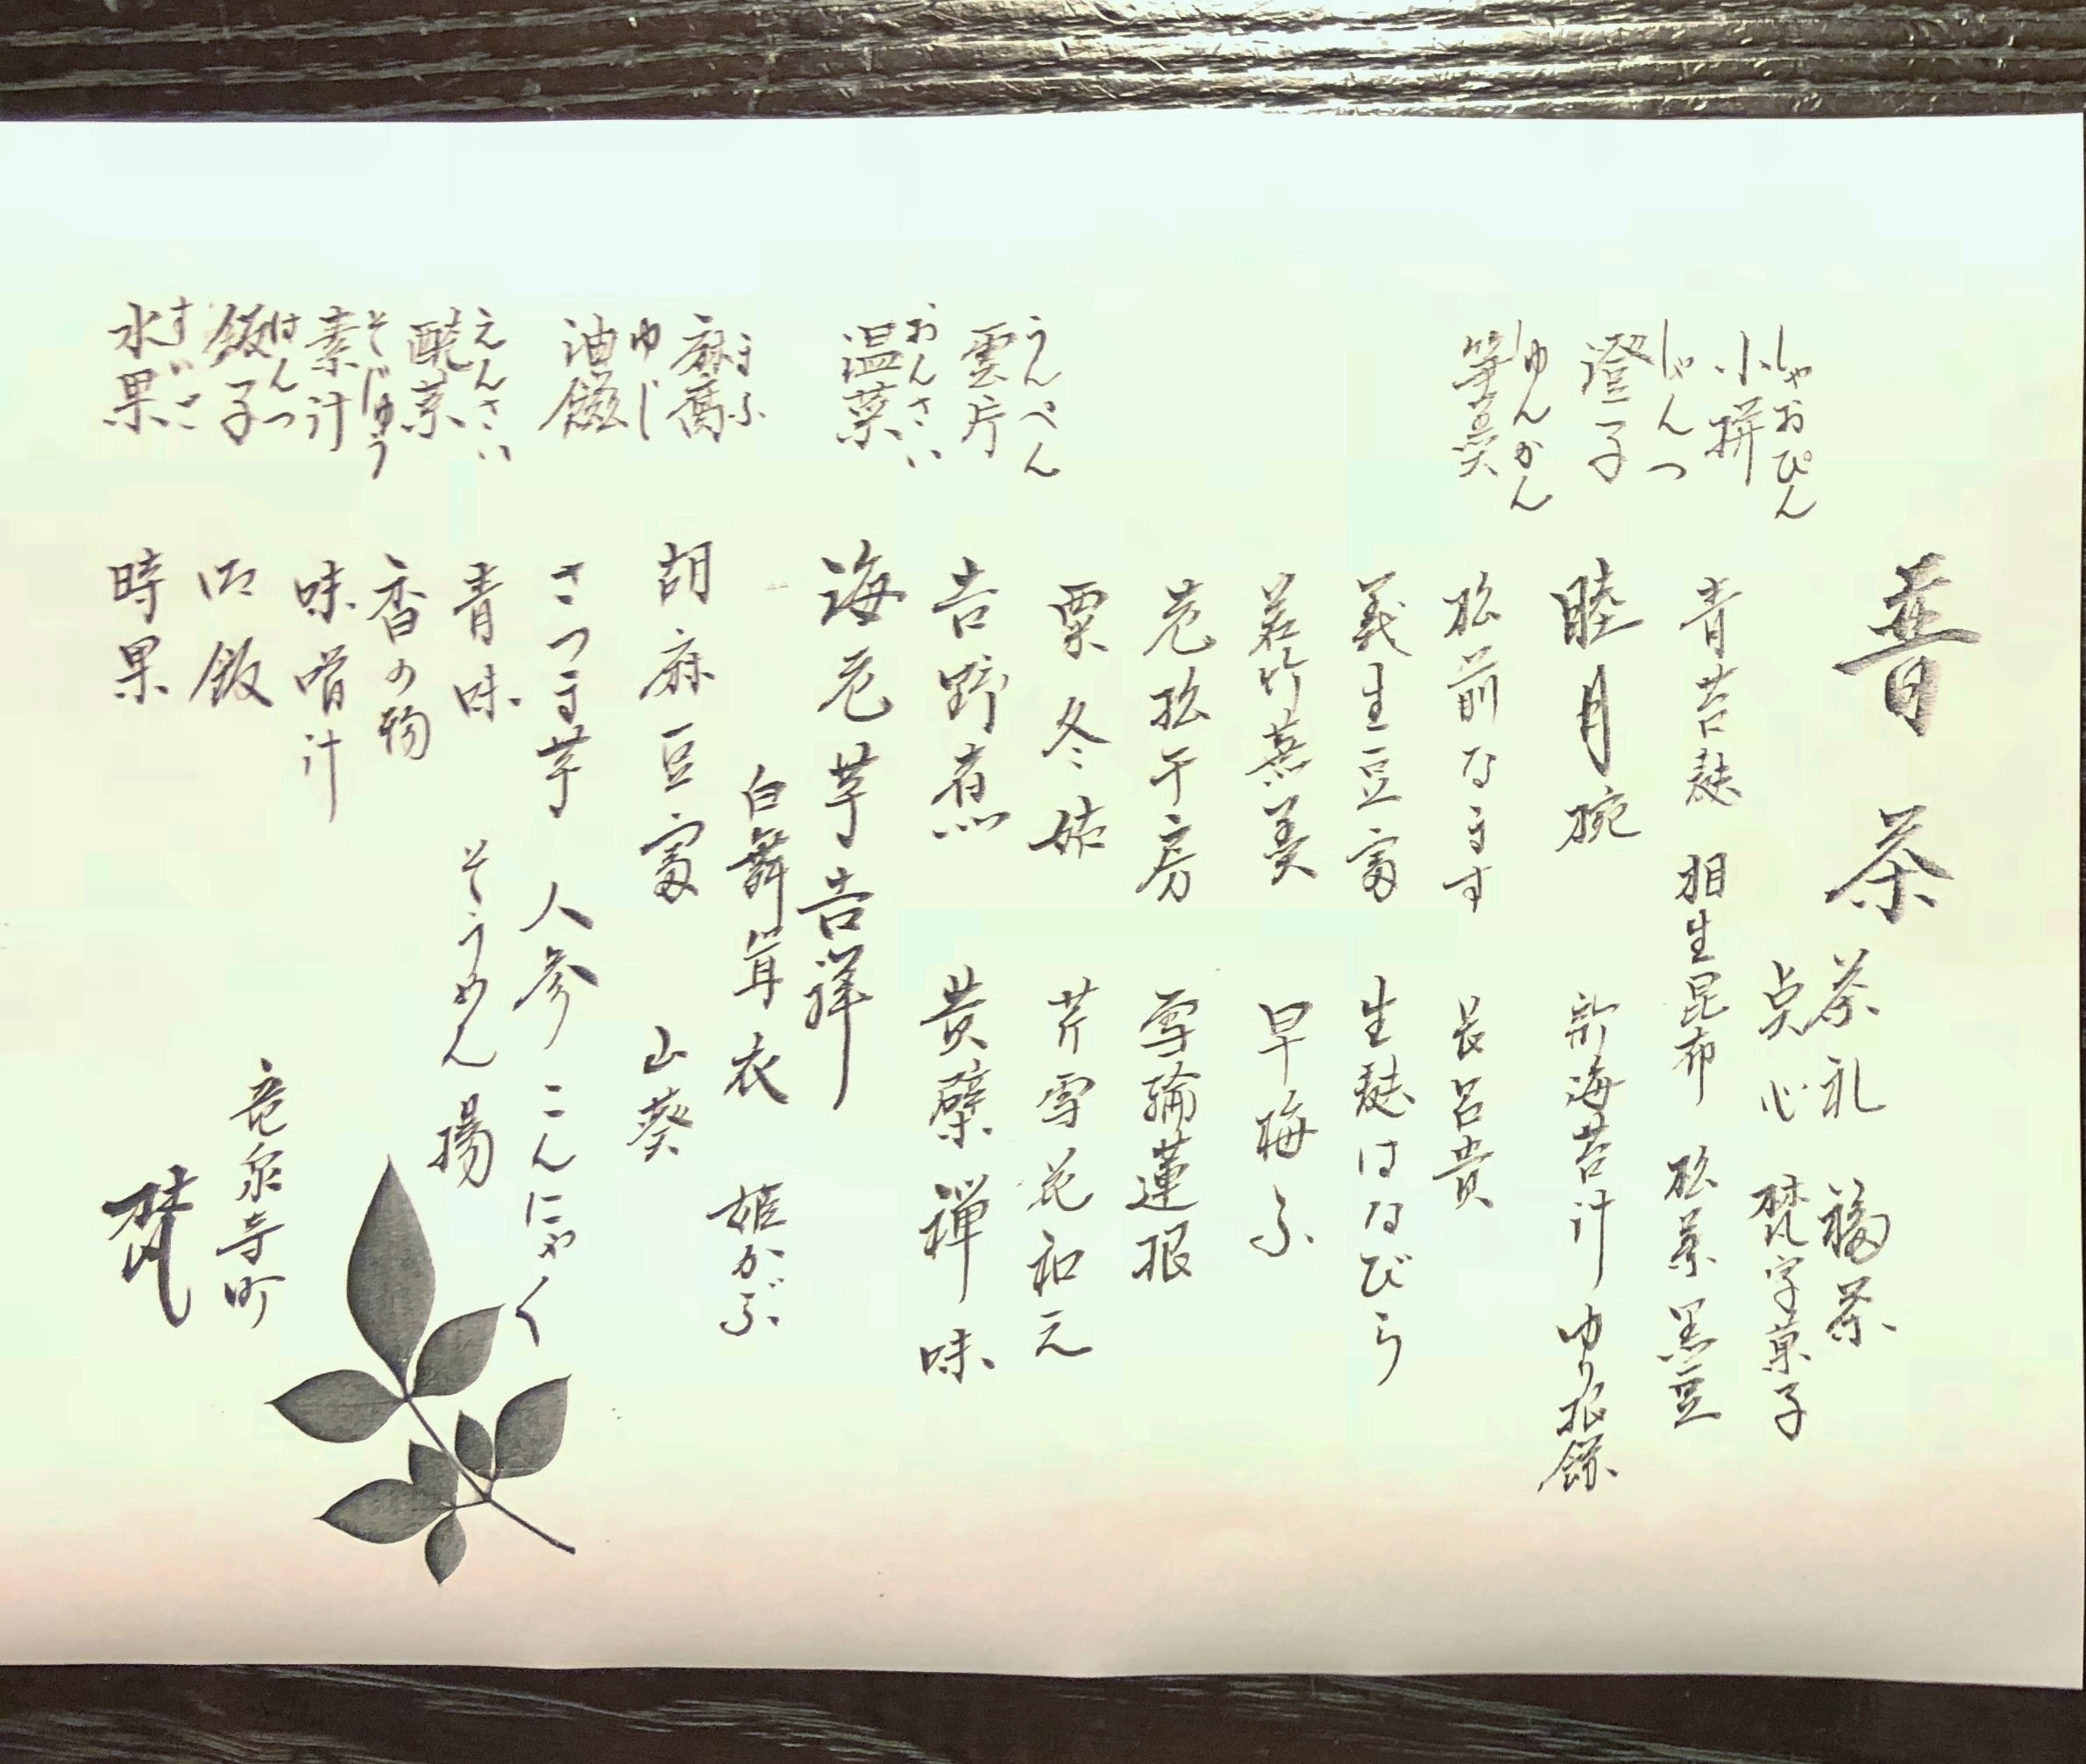 普茶 茶礼 福茶
点心 梵字菓子
しゃおぴん
小拼 青苔麩 相生昆布 松葉黒豆
しゃんつ
澄子 睦月椀 新海苔汁 ゆり根餅
しゅんかん
笋羹 松前なます 長呂貴
義生豆富 生麩はなびら
若竹蒸羹 早梅ふ
老松牛房 雪輪蓮根
粟冬姑 芹雪花和え
うんぺん
雲片 吉野煮 黄檗禅味
おんさい
温菜 海老芋吉祥
白舞茸衣 姫かぶ
まふ
麻腐 胡麻豆富 山葵
ゆじ
油鎡 さつま芋 人参 こんにゃく
青味 そうめん揚
えんさい
醃菜 香の物
そじゅう
素汁 味噌汁
はんつ
飯子 御飯
すいご
水果 時果
竜泉寺町
梵